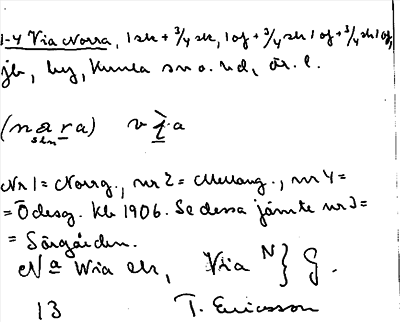 1-4 Via Norra, 1 sk + 3/4 sk, 1 of + 3/4 sk 1 of + 3/4 sk 1 of,
jb, by, Kumla sn o. hd, Ör. l.
(nara) via
skn
Nr 1 = Norrg., nr 2 = Mellang., nr 4 =
= Ödesg. Kb 1906. Se dessa jämte nr 3 =
= Sörgården.
Na Wia ek, Via N } G.
13 T. Ericsson